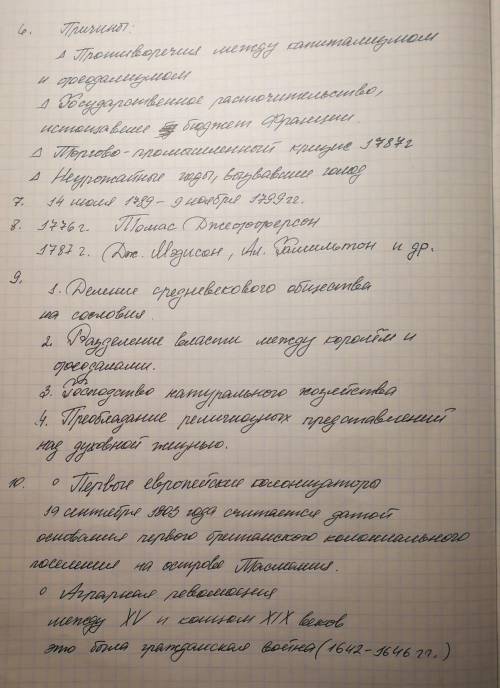 6. Причины:
△ Противоречия между капитализмом
и феодализмом
△ Государственное расточительство,
истощавшее бюджет Франции.
△ Торгово-промышленный кризис 1787г
△ Неурожайные годы, вызвавшие голод
7. 14 июля 1789 - 9 ноября 1799гг.
8. 1776г. Томас Джефферсон
1787г. (Дж. Мэдисон, Ал. Гамильтон и др.
9.
1. Деление средневекового общества
на сословия.
2. Разделение власти между королём и
феодалами.
3. Господство натурального хозяйства
4. Преобладание религиозных представлений
над духовной жизнью.
10. ° Первые европейские колонизаторы
19 сентября 1803 года считается датой
основания первого британского колониального
поселения на острове Тасмания.
° Аграрная революция
между XV и концом XIX веков
это была гражданская война (1642-1646 гг.)